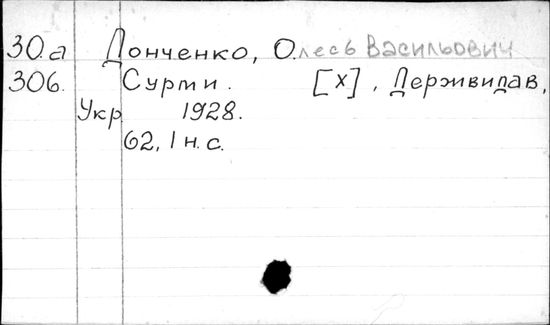 30.а Донченко, Олесь Васильович
306. Сурми. [Х], Держвидав,
Укр 1928.
62, 1 н. с.